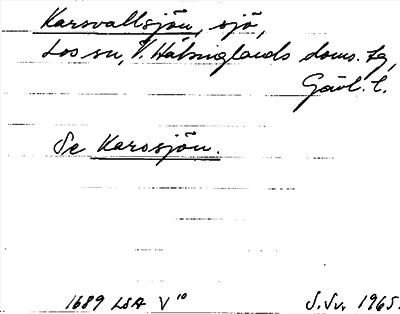 Karsvallsjön, sjö,
Los sn, V. Hälsinglands doms. tg,
Gävl. l.
Se Karosjön.
1689 LSA V¹⁰
S.Sv. 1965.